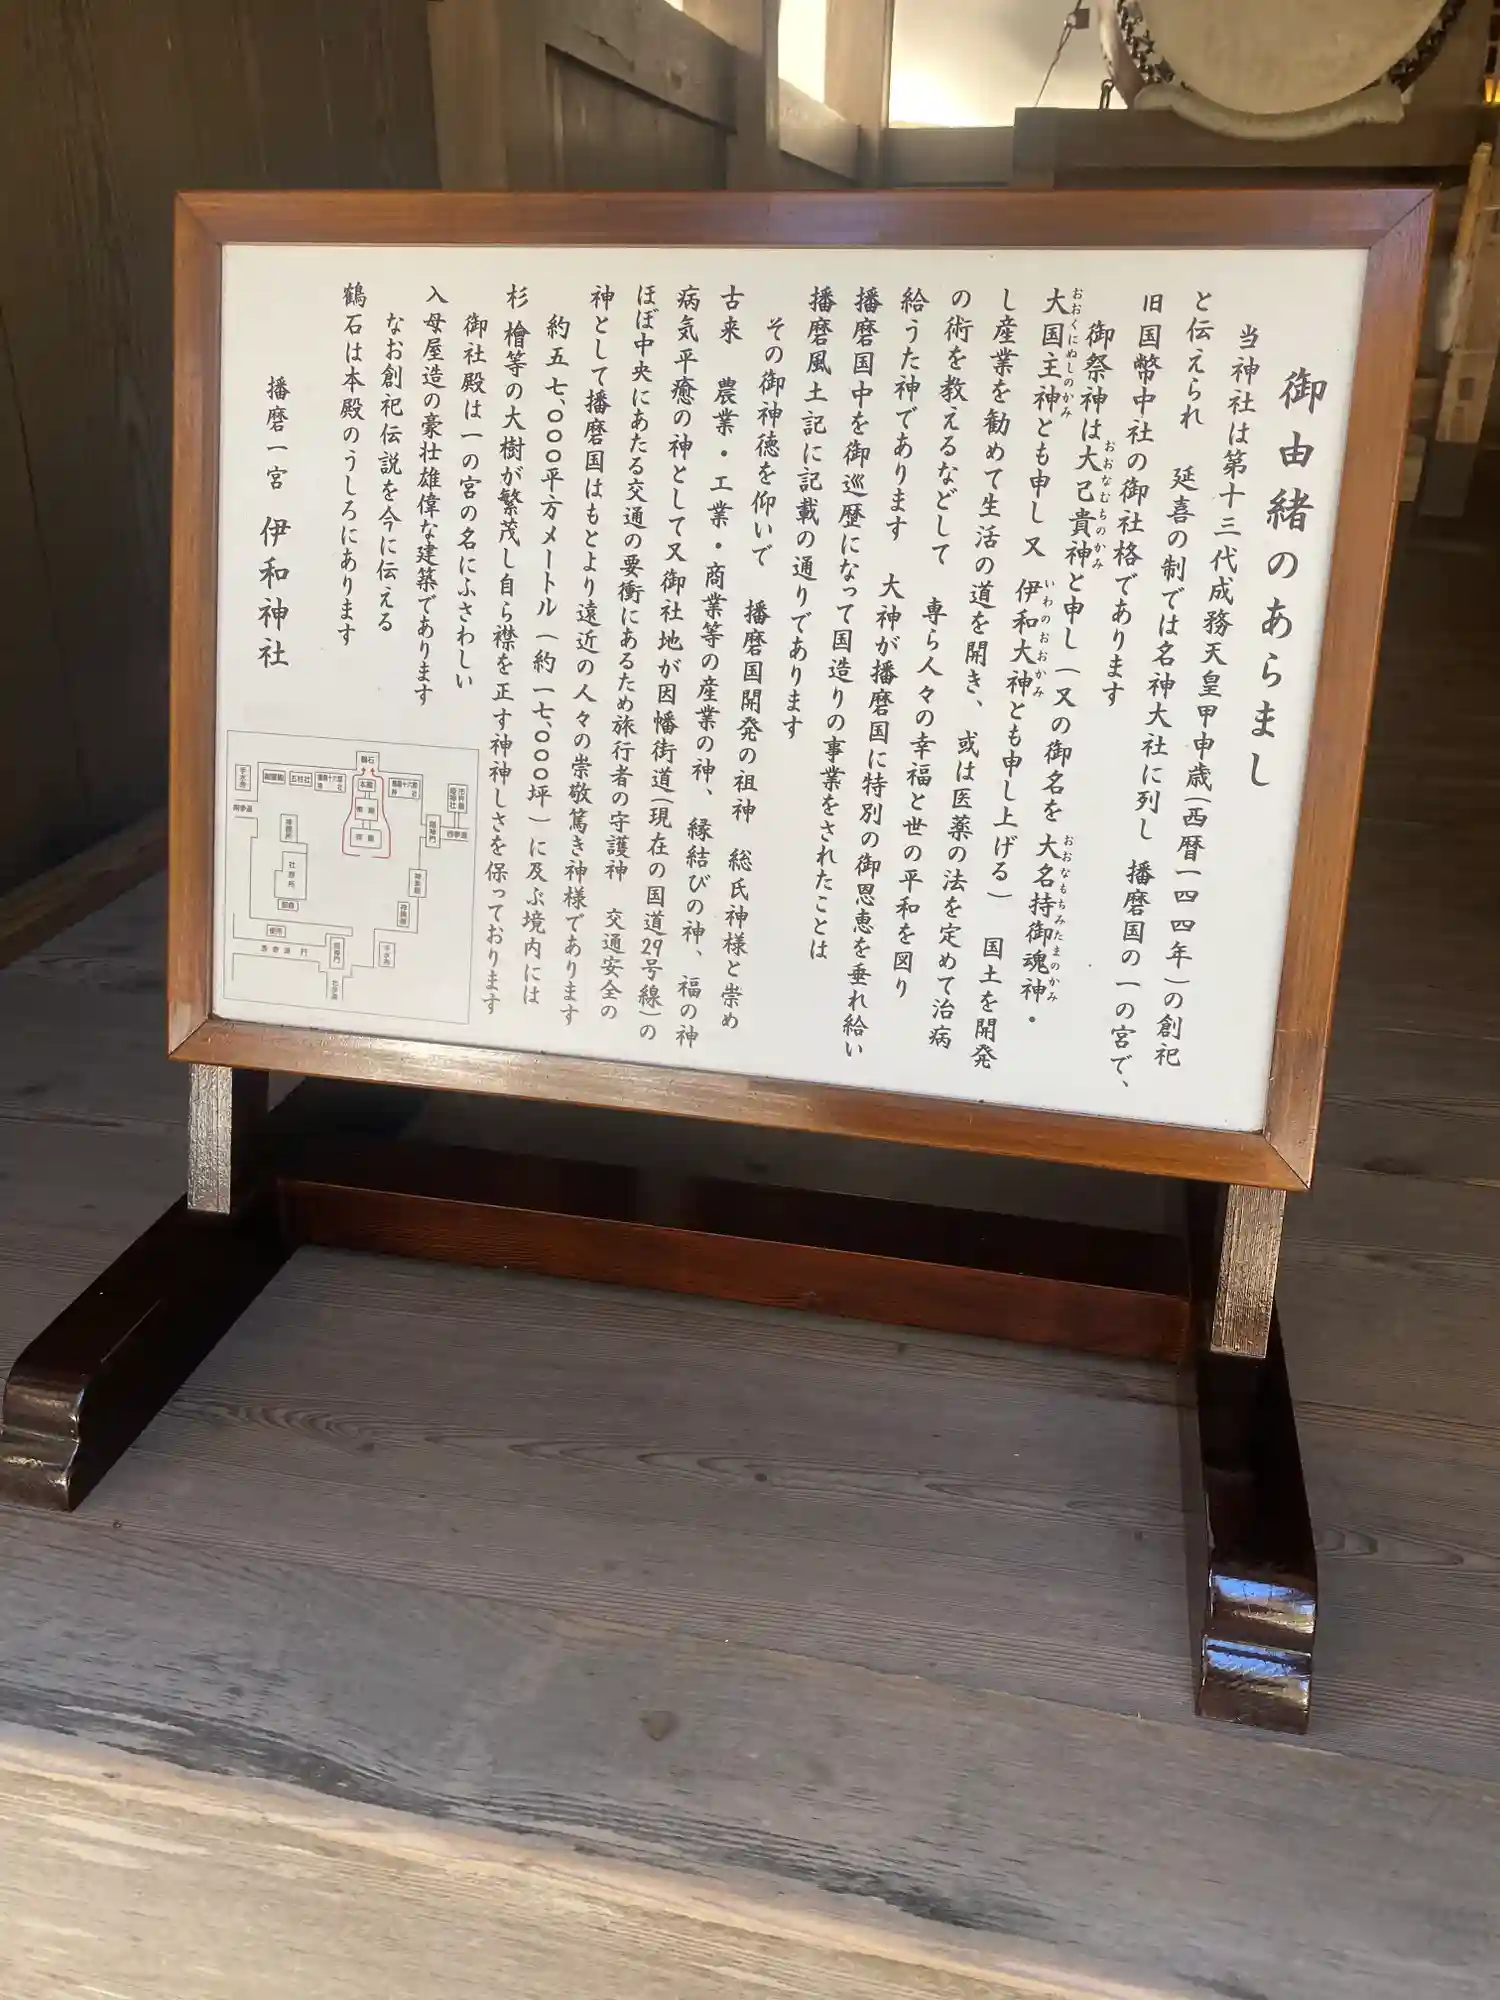 御由緒のあらまし
当神社は第十三代成務天皇甲申歳(西暦一四四年)の創祀
と伝えられ 延喜の制では名神大社に列し 播磨国の一の宮で、
旧国幣中社の御社格であります
御祭神は大己貴神と申し(又の御名を 大名持御魂神・
おおなむちのかみ
おおなもちみたまのかみ
大国主神とも申し又 伊和大神とも申し上げる) 国土を開発
おおくにぬしのかみ
いわのおおかみ
し産業を勧めて生活の道を開き、或は医薬の法を定めて治病
の術を教えるなどして 専ら人々の幸福と世の平和を図り
給うた神であります 大神が播磨国に特別の御恩恵を垂れ給い
播磨国中を御巡歴になって国造りの事業をされたことは
播磨風土記に記載の通りであります
その御神徳を仰いで 播磨国開発の祖神 総氏神様と崇め
古来 農業・工業・商業等の産業の神、縁結びの神、福の神
病気平癒の神として又御社地が因幡街道(現在の国道29号線)の
ほぼ中央にあたる交通の要衝にあるため旅行者の守護神 交通安全の
神として播磨国はもとより遠近の人々の崇敬篤き神様であります
約五七、〇〇〇平方メートル(約一七、〇〇〇坪)に及ぶ境内には
杉 檜等の大樹が繁茂し自ら襟を正す神神しさを保っております
御社殿は一の宮の名にふさわしい
入母屋造の豪壮雄偉な建築であります
なお創祀伝説を今に伝える
鶴石は本殿のうしろにあります
播磨一宮 伊和神社
鶴石
本殿
五柱社
手水舎
社務所
手水舎